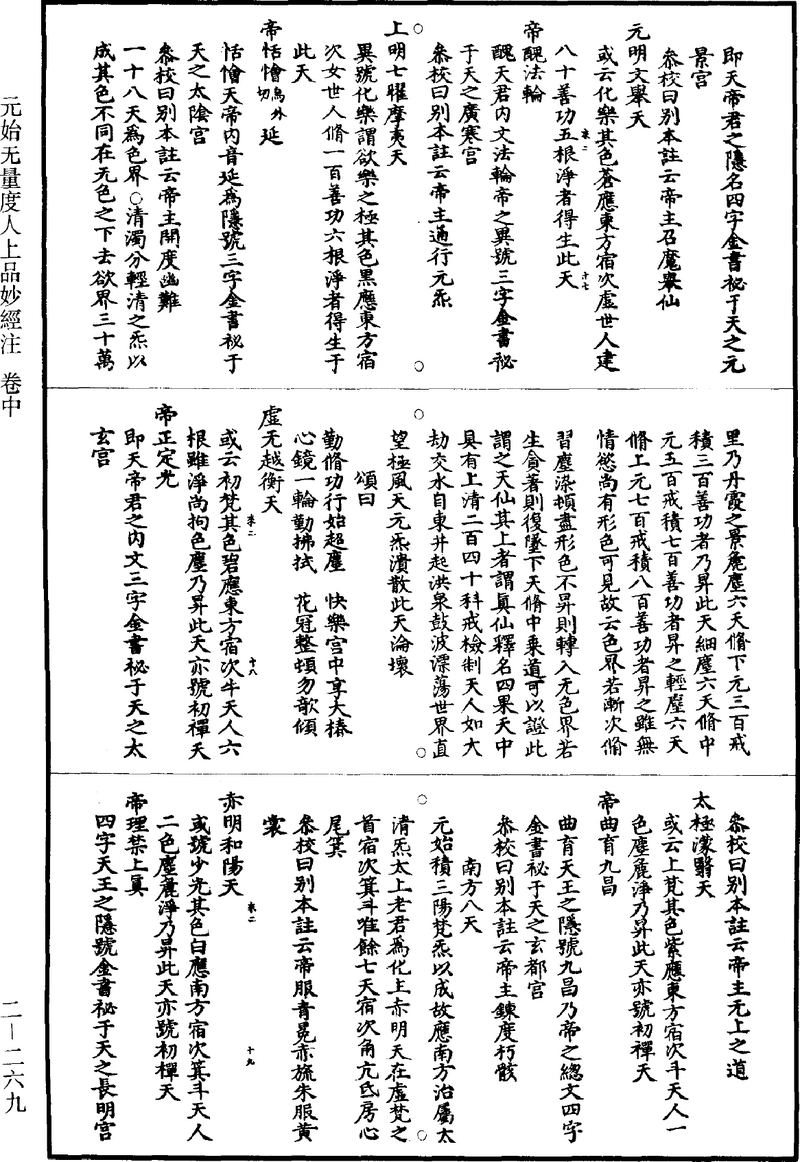 元始无量度人上品妙經注　卷中
二—二六九
即天帝君之隱名四字金書祕于天之元
景宮
叅校曰別本註云帝主召魔舉仙
元明文舉天
或云化樂其色蒼應東方宿次虛世人建
八十善功五根淨者得生此天
帝醜法輪
醜天君内文法輪帝之異號三字金書祕
于天之廣寒宮
叅校曰別本註云帝主通行元炁
上明七曜摩夷天
異號化樂謂欲樂之極其色黑應東方宿
次女世人脩一百善功六根淨者得生于
此天
帝恬憺烏外切延
恬憺天帝内音延爲隱號三字金書祕于
天之太陰宮
叅校曰別本註云帝主開度幽難
一十八天爲色界○清濁分輕清之炁以
成其色不同在无色之下去欲界三十萬
里乃丹霞之景麄塵六天脩下元三百戒
積三百善功者乃昇此天細塵六天脩中
元五百戒積七百善功者昇之輕塵六天
脩上元七百戒積八百善功者昇之雖無
情慾尚有形色可見故云色界若漸次脩
習塵染頓盡形色不昇則轉入无色界若
生貪著則復墜下天脩中乗道可以證此
謂之天仙其上者謂眞仙釋名四果天中
具有上清二百四十科戒檢制天人如大
劫交水自東井起洪泉鼓波漂蕩世界直
望極風天元炁潰散此天淪壞
頌曰
勤脩功行始超塵　快樂宮中享大椿
心鏡一輪勤拂拭　花冠整頓勿欹傾
虛无越衡天
或云初梵其色碧應東方宿次牛天人六
根雖淨尚拘色塵乃昇此天亦號初禪天
帝正定光
即天帝君之内文三字金書祕于天之太
玄宮
叅校曰別本註云帝主无上之道
太極濛翳天
或云上梵其色紫應東方宿次斗天人一
色塵麄淨乃昇此天亦號初禪天
帝曲育九昌
曲育天王之隱號九昌乃帝之總文四字
金書祕于天之玄都宮
叅校曰別本註云帝主鍊度朽骸
南方八天
元始積三陽梵炁以成故應南方治屬太
清炁太上老君爲化上赤明天在虛梵之
首宿次箕斗唯餘七天宿次角亢氐房心
尾箕
叅校曰別本註云帝服青冕赤旒朱服黄
裳
赤明和陽天
或號少光其色白應南方宿次箕斗天人
二色塵麄淨乃昇此天亦號初禪天
帝理禁上眞
四字天王之隱號金書祕于天之長明宮